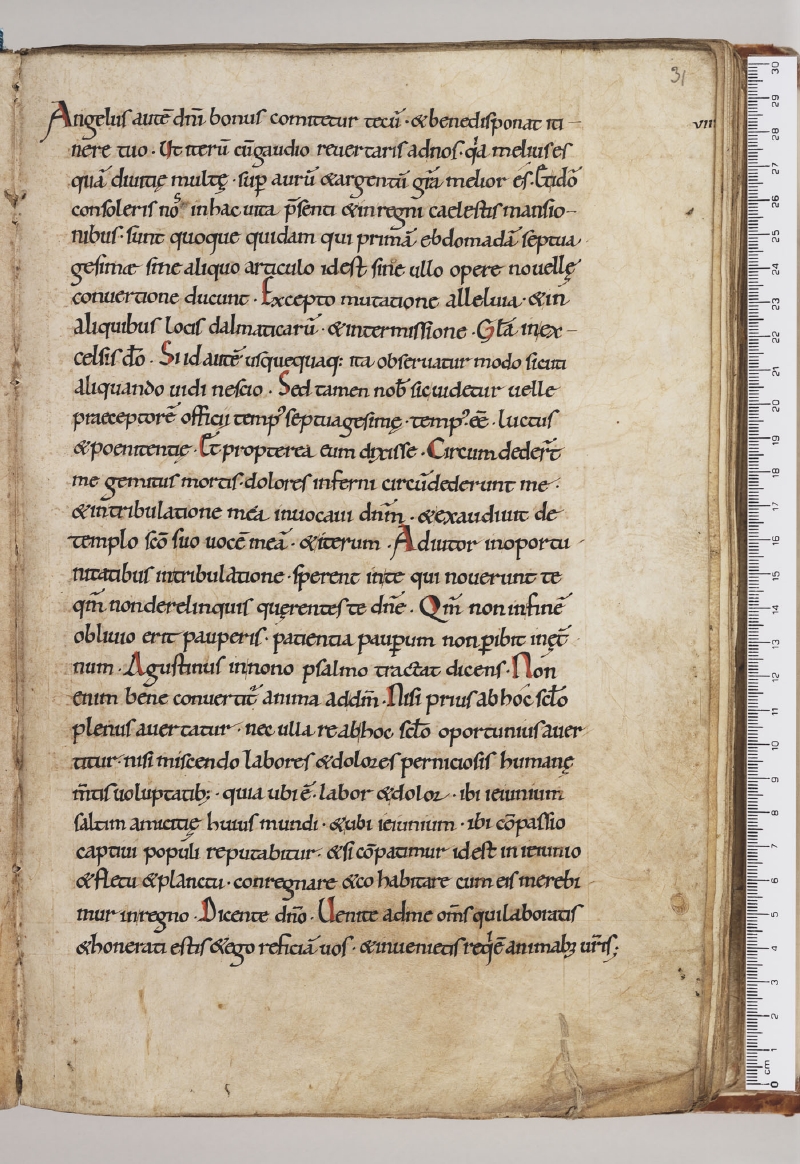 31
Angelus autē dnī bonus comitetur tecū · & benedisponat iti – vii
nere tuo · Ut iterū cūgaudio reuertaris adnos · qͥa melius es
quā diuitię multę · suꝑ aurū & argentū grā melior es · Et dō
consoleris nos inhac uita p̄senti & inregni caelestis mansio–
nibus · sunt quoque quidam qui primā ebdomadā septua
gesimæ sine aliquo articulo idest sine ullo opere nouellę
conuertione ducunt · Excepto mutatione alleluia · & in
aliquibus locis dalmaticarū · & intermissione · Glā inex –
celsis dō · Si id autē usquequaq: ita obseruatur modo sicuti
aliquando uidi nescio · Sed tamen nob̄ sic uidetur uelle
praeceptorē officii temp᾽ septuagesimę · temp᾽ · eē · luctus
& poenitentię · Et propterea eum dixisse · Circumdeder̄t
me gemitus mortis · dolores inferni circūdederunt me ·
& intribulatione mea inuocaui dnm̄ · & exaudiuit de
templo scō suo uocē meā · & iterum · Adiutor inoportu
nitatibus intribulatione · sperent inte qui nouerunt te
qm̄ nonderelinquis quęrentes te dnē · Qm̄ non infinē
obliuio erit pauperis · patientia pauꝑum non ꝑibit inęt̄
num · Agustinus innono psalmo tractat dicens · Non
enim bene conuertit᷑ anima addm̄ · Nisi prius abhoc sclō
plenus auertatur · nec ulla re abhoc sclō oportunius auer
titur · nisi miscendo labores & dolores perniciosis humanę
m̄tis uoluptatib; · quia ubi ē · labor & dolor · ibi ieiunium
saltim amicitię huius mundi · & ubi ieiunium · ibi cōpassio
captiui populi reputabitur · & si cōpatimur idest in ieiunio
& fletu & planctu · conregnare & cohabitare cum eis merebi
mur inregno · Dicente dnō · Uenite adme oms̄ qui laboratis
& honerati estis & ego reficiā uos · & inuenietis reqͥē animabꝫ uris̄;